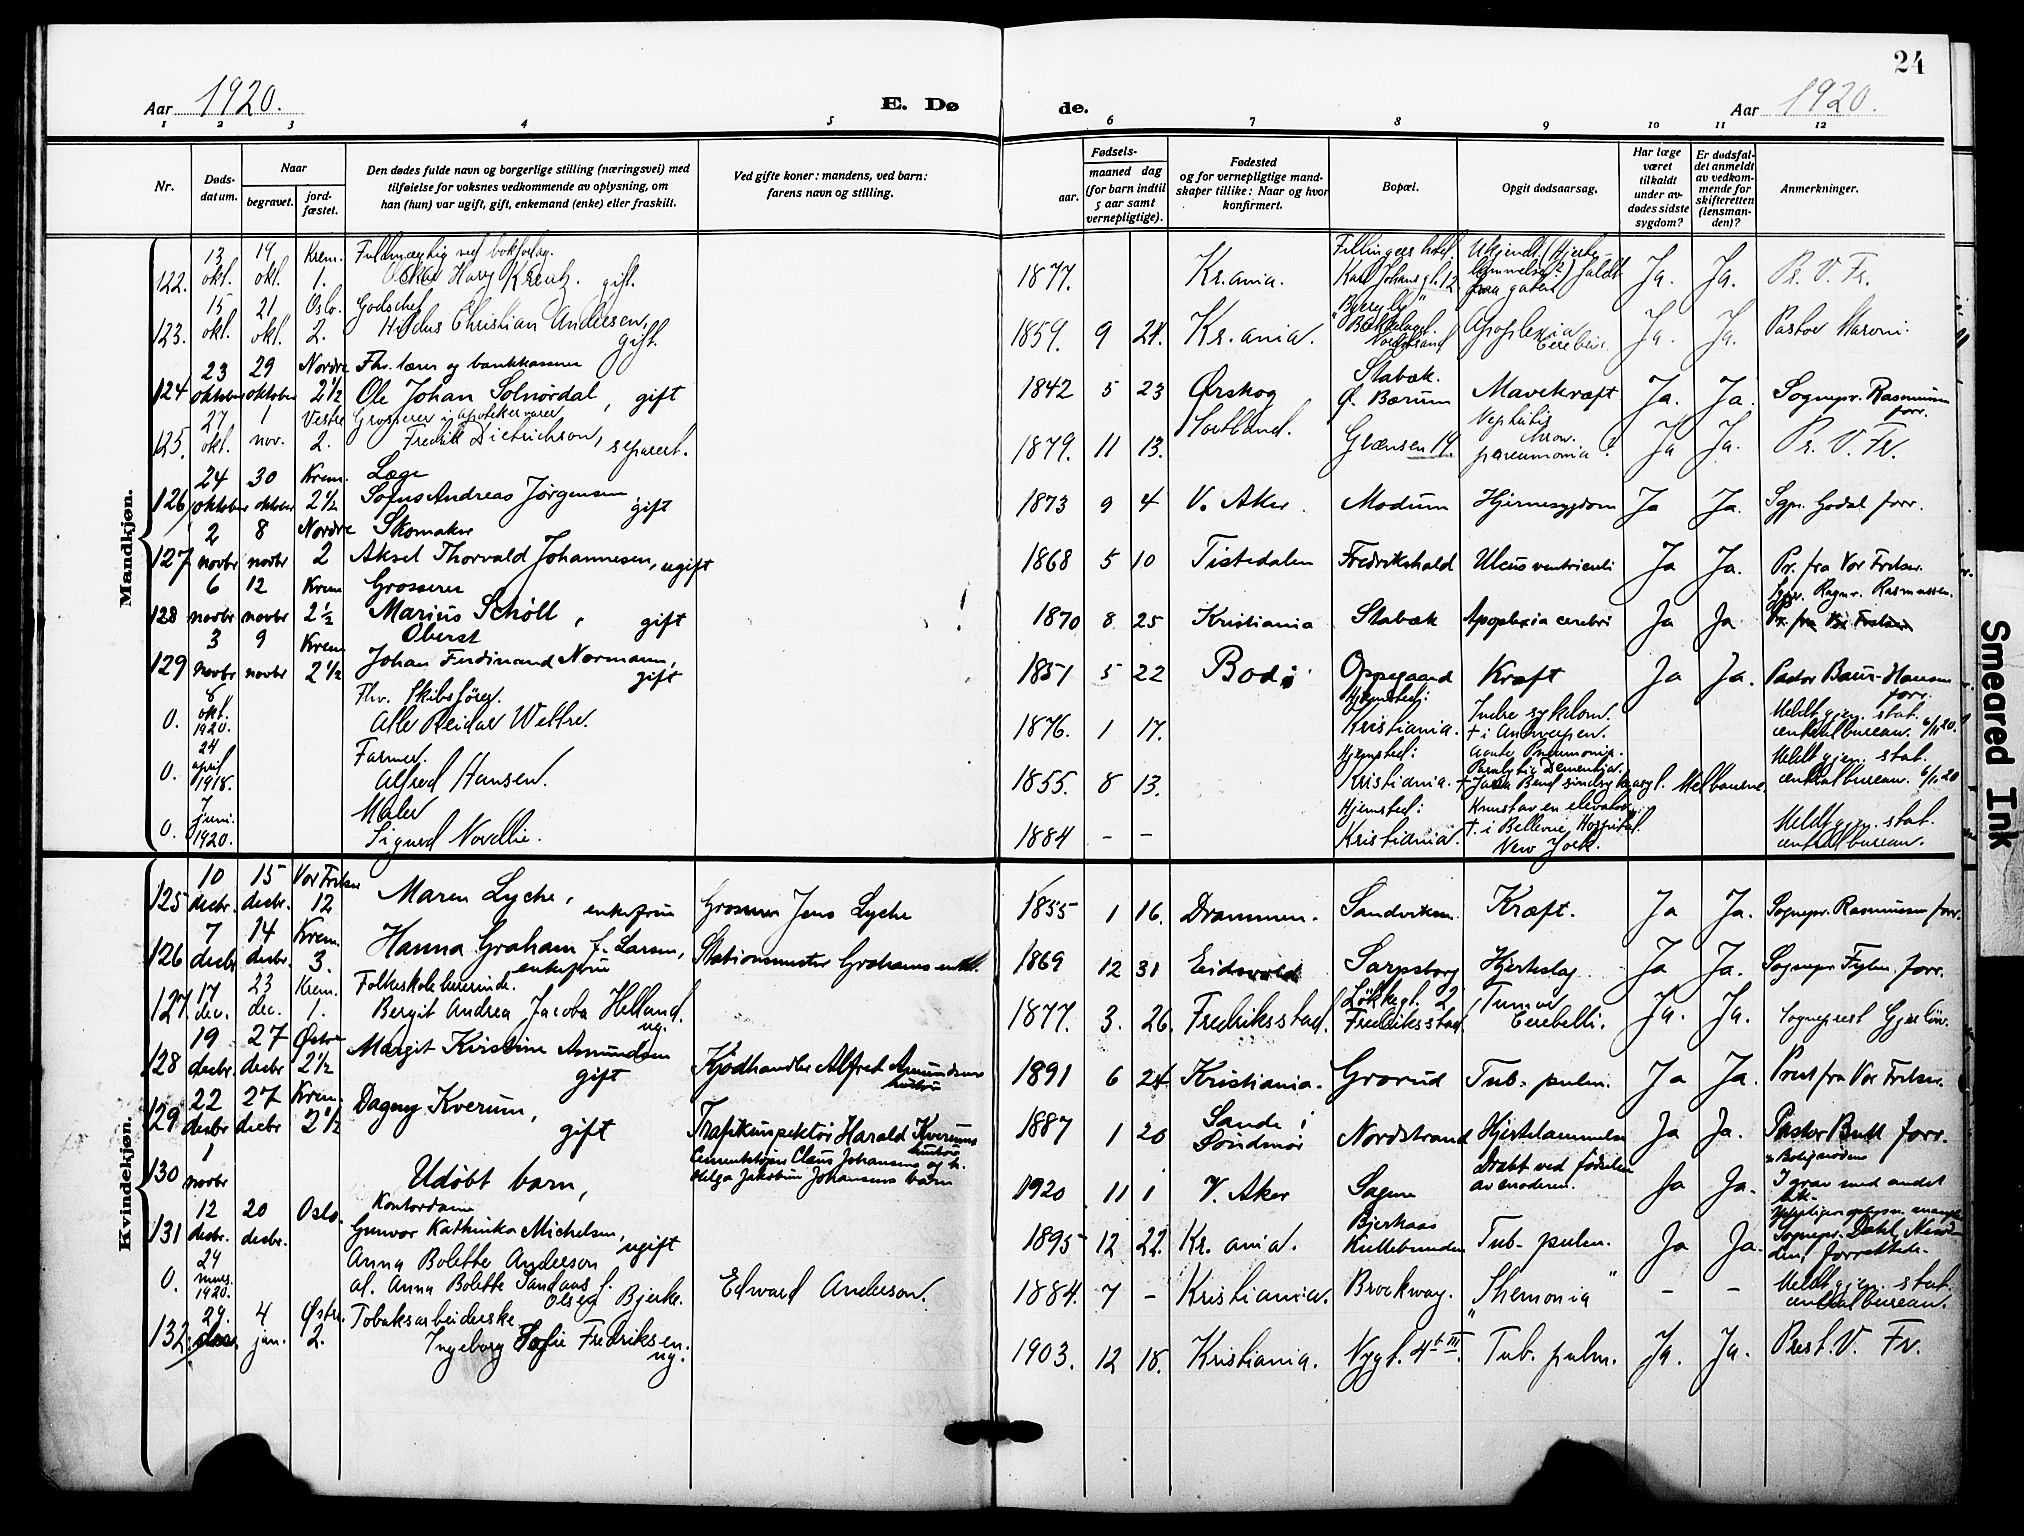 24
Aar 1920. E. Dø de. Aar 1920.
1 2 3 4 5 6 7 8 9 10 11 12
Nr.
Døds-
datum.
Naar
begravet.
jord-
fæstet.
Den dødes fulde navn og borgerlige stilling (næringsvei) med
tilføielse for voksnes vedkommende av oplysning, om
han (hun) var ugift, gift, enkemand (enke) eller fraskilt.
Ved gifte koner: mandens, ved barn:
farens navn og stilling.
Fødsels-
aar.
maaned dag
(for barn indtil
5 aar samt
vernepligtige).
Fødested
og for vernepligtige mand-
skaper tillike: Naar og hvor
konfirmert.
Bopæl.
Opgit dødsaarsag.
Har læge
været
tilkaldt
under av-
dødes sidste
sygdom?
Er dødsfal-
det anmeldt
av vedkom-
mende for
skifteretten
(lensman-
den)?
Anmerkninger.
Mandkjøn.
13 19 Krem. Fuldmægtig ved
122. okt. okt. 1. Oskar Harry Kreutz. gift. 1877. Kr.ania. Karl Johansgt. 12 fra gaten. Ja. Ja. Pr. V. Fr.
15 21 Oslo. Godschef
123. okt. okt. 2. Christian Andersen, gift. 1859. 9 24. Kr.ania. Bækkelaget. Nordstrand Apoplexia Cerebri. Ja. Ja. Pastor Maroni.
23 29 Nordre Fhv. lærer og bankkasserer
124 oktober oktober 2 1/2 Ole Johan Solnørdal, gift 1842 5 23 Ørskog Stabæk. Ø. Bærum Mavekræft Ja. Ja. Sognepr. Rasmussen forr.
27 1 Vestre Grosserer i apotekervarer
125. okt. nov. 2. Fredrik Dietrichson, separert. 1879. 11 13. Grænsen 19. Nephritis chron. pneumonia? Ja Ja. Pr. V. Fr.
24 30 Krem. Læge
126 oktober oktober 2 1/2 Sofus Andreas Jørgensen gift 1873 9 4 V. Aker Modum Hjernesygdom Ja Ja. Sgpr. Godal forr.
2 8 Nordre Skomaker
127 novbr novbr 2 Aksel Thorvald Johannesen, ugift 1868 5 10 Tistedalen Fredrikshald Ulcus ventriculi Ja Ja. Pr. fra Vor Frelser.
6 12 Krem Grosserer
128 novbr novbr 2 1/2 Marius Schöll, gift 1870 8 25 Kristiania Stabæk Apoplexia cerebri Ja Ja Sgpr. Ragnv. Rasmussen.
3 9 Krem Oberst
129 novbr novbr 2 1/2 Johan Ferdinand Normann, gift 1851 5 22 Bodø Oppegaard Kræft Ja Ja. Pastor Baun-Hansen forr.
8 Fhv. Skibsfører.
0. okt. 1920. Alle Reidar Wettre. 1876. 1 17. Hjemsted: Kristiania. Indre sykdom. † i Antwerpen. Meldt gjen. stat. centralbureau. 6/11 20.
24 Farmer.
0. april 1918. Alfred Hansen. 1855. 8 13. Hjemsted: Kristiania. Acute Pneumonia. Paralytic Dementia. † Melbourne. Meldt gjen. stat. centralbureau. 6/11 20
7 Maler
0. juni. 1920. Sigurd Novellie. 1884 - - Hjemsted: Kristiania. Knust av en elevator. † i Bellevue Hospital. New York. Meldt gjen. stat. centralbureau.
Kvindekjøn.
10 15 Vor Frelser
125 desbr. desbr. 12 Maren Lyche, enkefrue Grosserer Jens Lyche 1855 1 16. Drammen. Sandviken. Kræft. Ja Ja. Sognepr. Rasmussen forr.
7 14 Krem.
126 desbr desbr. 3. Hanna Graham f. Larsen, enkefrue Stationsmester Grahams enke. 1869 12 31 Eidsvold Sarpsborg Hjerteslag Ja Ja. Sognepr. forr.
17 23 Krem. Folkeskolelærerinde.
127. dec. dec. 1. Bergit Andrea Jacoba Helland. ug. 1877. 3. 26. Fredriksstad. Løkkegt. 2, Fredriksstad. Tumor Cerebelli. Ja. Ja. Sogneprest
19 27 Østre
128 desbr. desbr 2 1/2 Margit Kristine Amundsen gift Kjødhandler Alfred Amundsens hustru 1891 6 24. Kristiania. Grorud Tub. pulm. Ja Ja. Prest fra Vor Frelser.
22 27 Krem.
129 desbr desbr 2 1/2 Dagny Kverum, gift Trafikinspektør Harald Kverums hustru 1887 1 20 Sande i Søndmør Nordstrand Hjertelammelse Ja Ja. Pastor Bull forr.
1
130 novbr Udöbt barn, Cementstøper Claus Johansens og h. Helga Jakobine Johansens barn 1920 11 1 V. Aker Sagene Dræbt ved fødselen av moderen. Ja Ja. I grav med andet lik.
12 20 Oslo. Kontordame
131 desbr. desbr. Gunvor Kathinka Michelsen, ugift 1895 12 22. Kr. ania. Bjerkaas Kullebunden Tub. pulm. Ja Ja. Sognepr. Dahl, forrettede.
24 Anna Bolette Anderson
0. 1920. al. Anna Bolette f. Olsen Bjerke. Edward Anderson. 1884. 7 - Kristiania. Brockway. "Shemonia" - - Meldt gjen. stat. centralbureau.
29. 4 Østre. Tobaksarbeiderske
132. jan. 2. Ingeborg Sofie Fredriksen. ug. 1903. 12 18. Kristiania. Nygt. 4 b III. Tub. pulm. Ja. Ja. Prest. V. Fr.
Smeared Ink